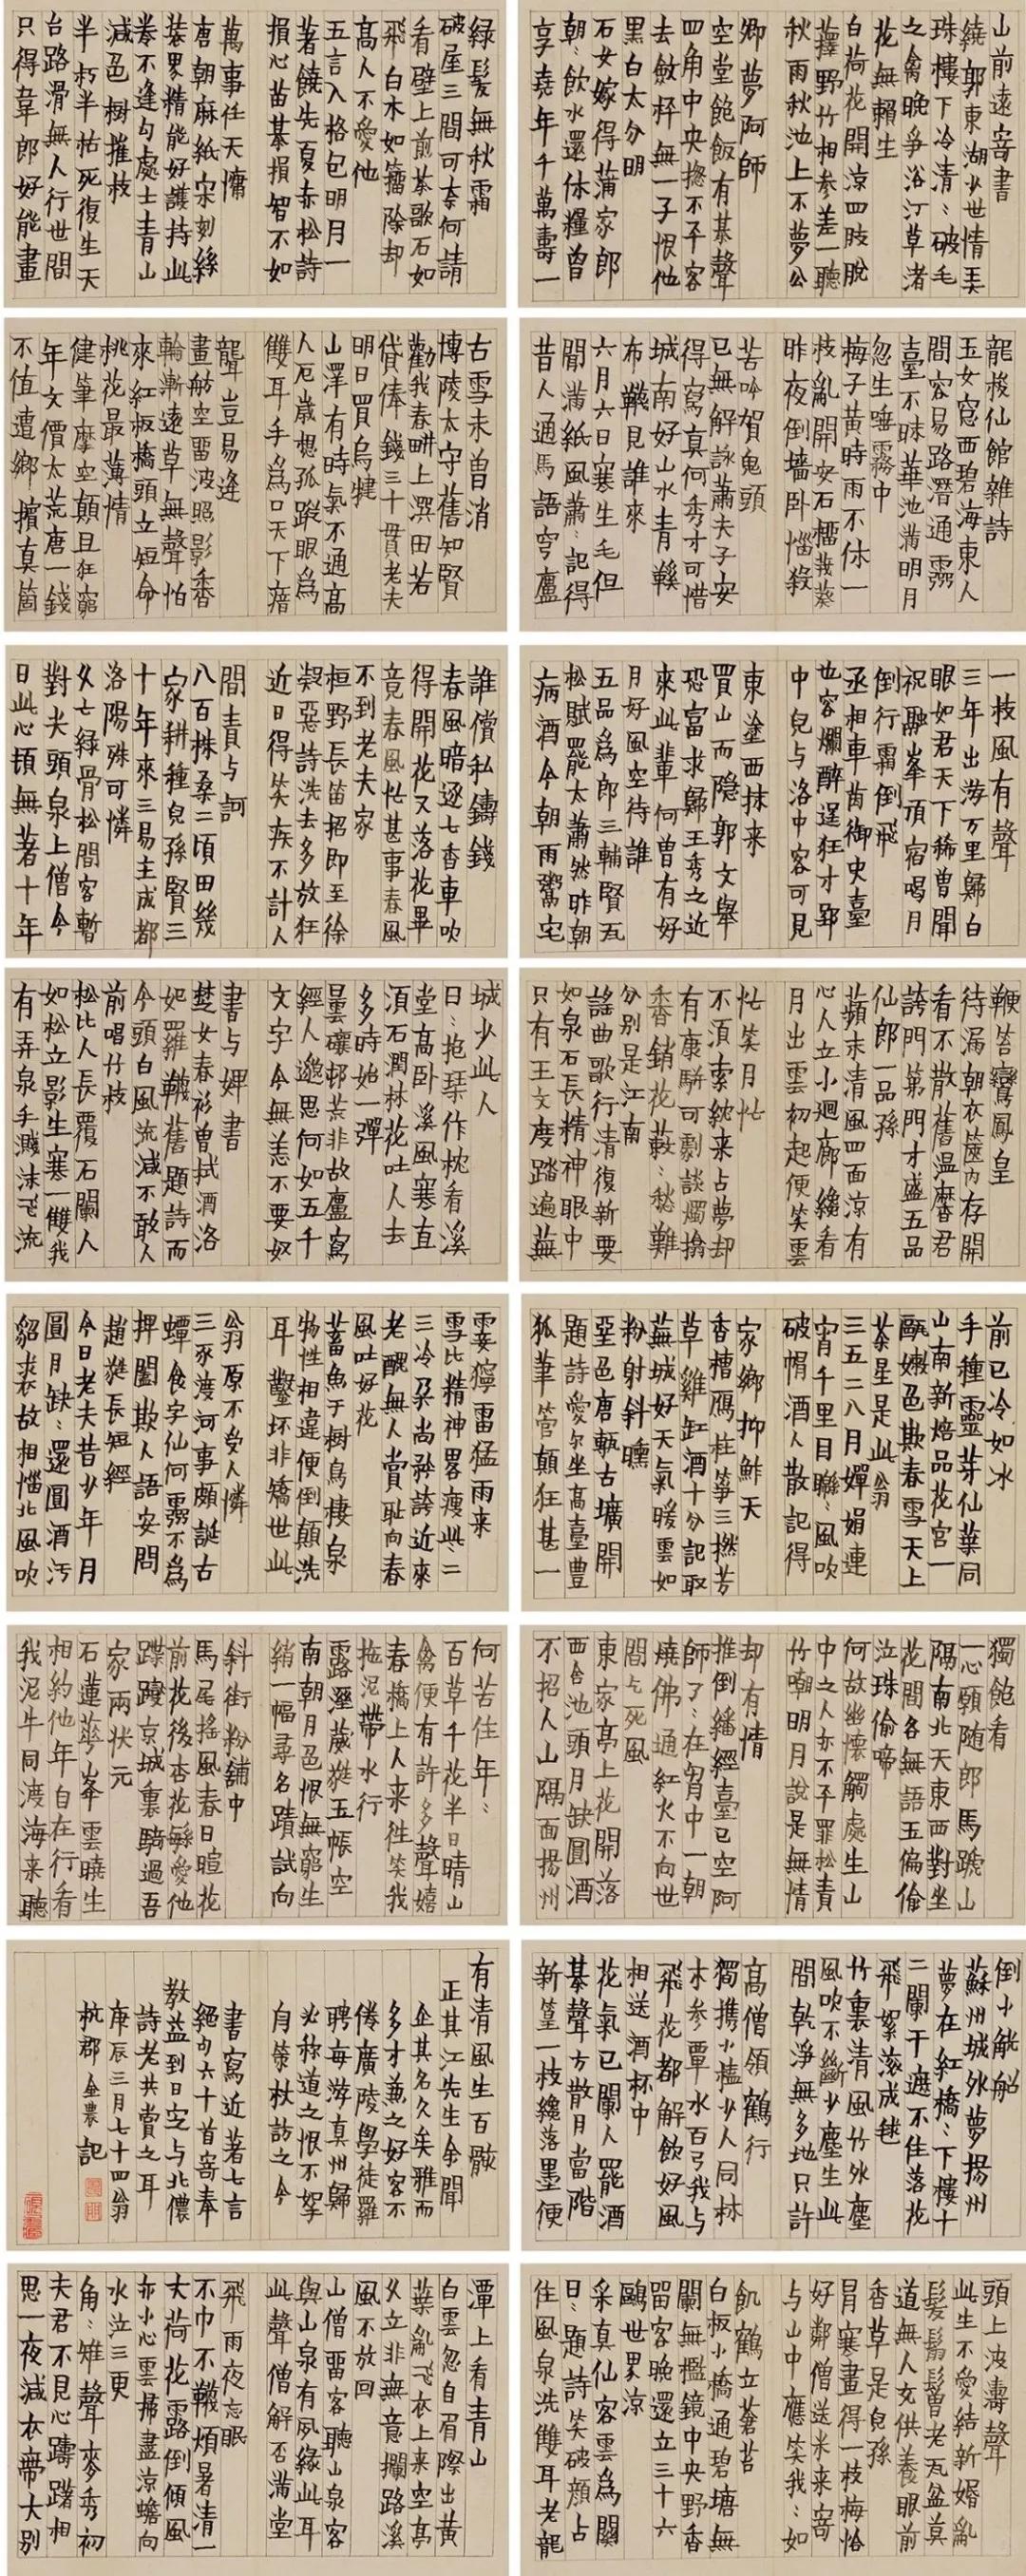 山前遠寄書
繞郭東湖少世情美
珠樓下冷清〻破毛
之禽晚爭浴汀草渚
花無賴生
白荷花開涼四肢脫
蘀野竹相參差一聽
秋雨秋池上不夢公
卿夢阿師
空堂飽飯有棊聲
四角中央揔不平客
去斂枰無一子恨他
黑白太分明
石女嫁得蒲家郎
朝〻飲水還休糧曾
享堯年千萬壽一
綠髮無秋霜
破屋三間可奈何請
看壁上前棊歌石如
飛白木如籀除却
高人不愛他
五言入格包明月一
著饒先夏赤松詩
損心苗棊損智不如
萬事任天慵
唐朝麻紙宋刻絲
裝累精能好護持此
卷不逢勾處士青山
減色樹摧枝
半朽半枯死復生天
台路滑無人行世間
只得韋郎好能畫
龍梭仙館雜詩
玉女窓西碧海東人
間容易路潛通霧
臺不昧華池滿明月
忽生唾霧中
梅子黃時雨不休一
枝亂開安石榴黃葵
昨夜倒墻卧惱殺
苦吟賀鬼頭
已無解詠蕭夫子安
得寫真何秀才可惜
城南好山水青鞵
布韈見誰來
六月六日寒生毛但
聞滿紙風蕭〻記得
昔人通馬語穹廬
古雪未曾消
博陵太守舊知賢
勸我春畊上潠田若
貸俸錢三十貫老夫
明日買烏犍
山澤有時氣不通高
人厄歲想孤蹤眼爲
雙耳手爲口天下瘖
聾豈易逢
畫舫空留波照影香
輪漸遠草無聲怕
來紅板橋頭立短命
桃花最薄情
健筆摩空顛且狂窮
年文價太荒唐一錢
不值遭鄉擯真箇
一枝風有聲
三年出游万里歸白
眼如君天下稀曾聞
祝融峯頂宿喝月
倒行霜倒飛
丞相車茵御史臺
也容爛醉逞狂才郢
中兒与洛中客可見
東塗西抹来
買山而隱郭文舉
恐富求歸王秀之近
來此輩何曾有好
月好風空待誰
五品爲郎三輔賢瓦
松賦罷太蕭然昨朝
病酒今朝雨鬻宅
誰償私鑄錢
春風暗逐七香車吹
得開花又落花畢
竟春風忙甚事春風
不到老夫家
桓野長笛招即至徐
凝惡詩洗去多放狂
近日得笑疾不計人
間青与訶
八百株桑二頃田幾
家耕種兒孫賢三
十年來三易主成都
洛陽殊可憐
久亡綠骨松間客暫
對尖頭泉上僧今
日此心頓無著十年
鞭笞鸞鳳皇
待漏朝衣篋内存開
看不散舊温麐君
誇門第門才盛五品
仙郎一品孫
蘋末清風四面涼有
心人立小迴廊纔看
月出雲初起便笑雲
忙笑月忙
不須索紞来占夢却
有康駢可劇談燭搚
香銷花薂〻愁難
分别是江南
謠曲歌行清復新要
如泉石長精神眼中
只有王文度踏遍蕪
城少此人
日〻抱琹作枕看溪
堂高卧溪風寒直
湏石潤林花吐人去
多時始一彈
曇礦邨荒非故廬寫
經人邈思何如五千
文字今無恙不要奴
書与婢書
楚女春衫曽拭酒洛
妃羅韈舊題詩而
今頭白風流減不敢人
前唱竹枝
松比人長覆石闌人
如松立影生寒一雙我
有弄泉手濺沫飞流
前已冷如冰
手種靈芽仙葉同
山南新焙品花宮一
甌嫩色欺春雪天上
茶星是此翁
三五二八月嬋娟連
宵千里目聯〻風吹
破帽酒人散記得
家鄉抑鮓天
香槽鴈柱箏三撚芳
草雞缸酒十分記取
蕪城好天氣暖雲如
粉射斜曛
堊色唐甎古壙開
題詩愛尔坐高臺豐
狐筆管顛狂甚一
霎獰雷猛雨来
雪比精神畧瘦些二
三冷朶尚矜誇近來
老醜無人賞耻向春
風吐好花
蓄魚于樹鳥棲泉
物性相違便倒顛洗
耳鑿坏非矯世此
翁原不受人憐
三豕渡河事頗誕古
蟫食字仙何霧不爲
捭闔欺人語安問
趙蕤長短經
今日老夫昔少年月
圓月缺〻還圓酒汚
貂裘衣故相惱北風吹
獨飽看
一心願随郎馬蹏山
隅南北天東西對坐
花間各無語玉徧偷
泣珠偷啼
何故幽懷觸處生山
中之人亦不平罪松責
竹嘲明月說是無情
却有情
推倒繙經臺已空阿
師了〻在胷中一朝
燒佛通紅火不向世
間乞死風
東家亭上花開落
西舍池頭月缺圓酒
不招人山隔面揚州
何苦住年〻
百草千花半日晴山
禽便有許多聲嬉
春橋上人来徃笑我
拖泥帶水行
露溼葳蕤玉帳空
南朝月邑恨無窮生
綃一幅尋名蹟試向
斜街粉鋪中
馬尾搖風春日暄花
前花後杏花繁愛他
蹀躞京城裏騎過吾
家兩状元
石蓮華峯雲曉生
相約他年自在行看
我泥牛同渡海来聽
倒小觥船
蘇州城外夢揚州
夢在紅橋〻下樓十
二闌干遮不住落花
飛絮滾成毬
竹裏清風竹外塵
風吹不斷少塵生此
間乾淨無多地只許
高僧領鶴行
獨携小榼少人同林
木参覃水百弓我与
飛花都解飲好風
相送酒杯中
花氣已闌人罷酒
棊聲方散月當階
新篁一枝纔落墨便
有清風生百骸
正其江先生余聞
企其名久矣雅而
多才兼之好客不
倦廣陵學徒羅
聘每游真州歸
必称道之恨不挐
自策杖訪之今
書寫近著七言
絕句六十首寄奉
教益到日定与北儂
詩老共賞之耳
庚辰三月七十四翁
杭郡金農記
頭上波濤聲
此生不愛結新婚亂
髮鬅鬙老瓦盆莫
道無人充供養眼前
香草是兒孫
冐寒畫得一枝梅恰
好鄰僧送米来寄
与山中應笑我〻如
飢鶴立蒼苔
白板小橋通碧塘無
闌無檻鏡中央野香
留客晚還立三十六
鷗世界涼
采真仙客雲爲關
日〻題詩笑破顏占
住風泉洗雙耳老龍
潭上看青山
白雲忽自眉際出黃
葉亂飞衣上来空亭
久立非無意攔路溪
風不放回
山僧留客聽山泉客
與山泉有夙緣此耳
此聲僧解否滿堂
飛雨夜忘眠
不巾不韈煩暑清一
大荷花露倒傾風
亦小心雲掃盡涼蟾向
水泣三更
角〻雉聲麥秀初
夫君不見心躊躇相
思一夜減衣帶大别